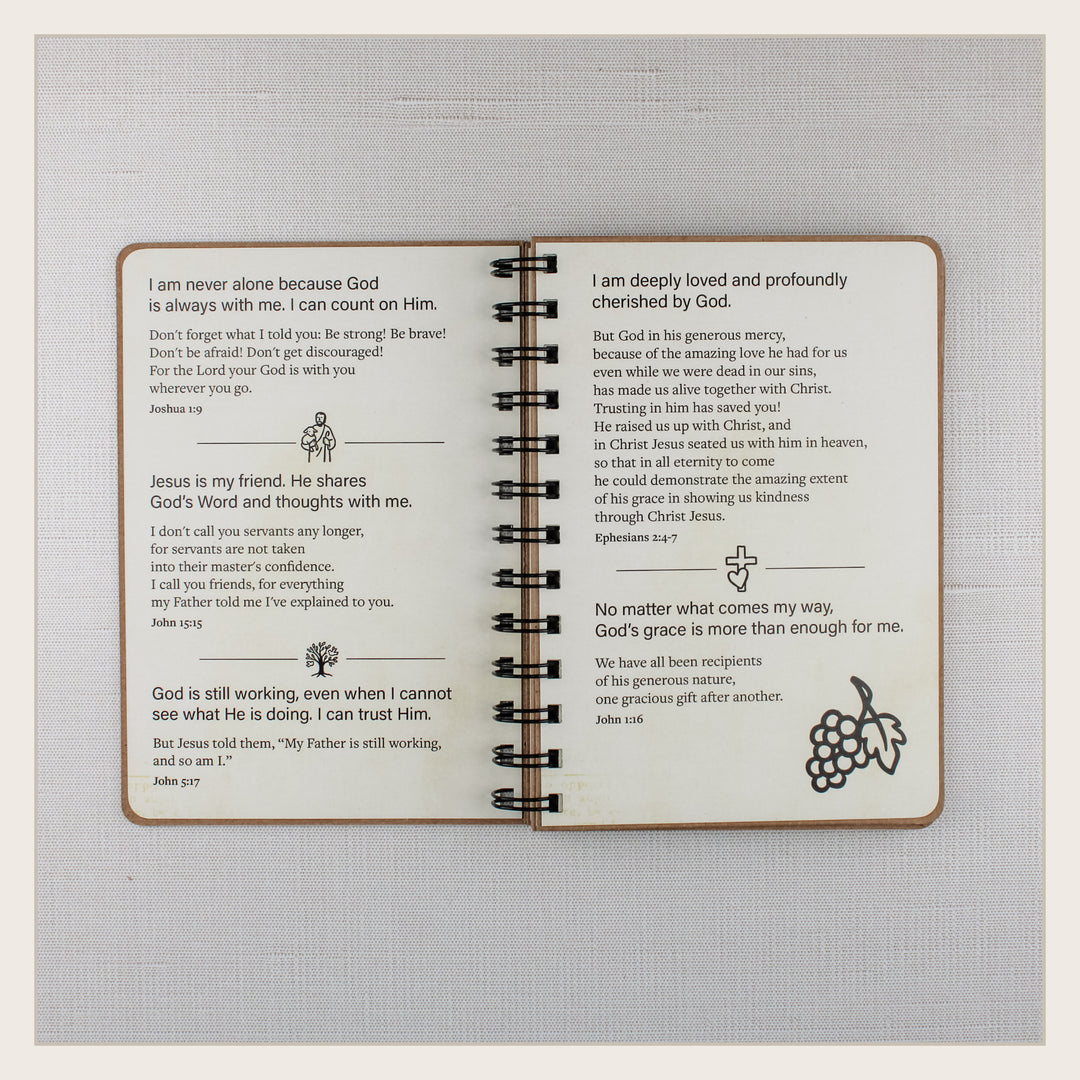 I am never alone because God
is always with me. I can count on Him.
Don't forget what I told you: Be strong! Be brave!
Don't be afraid! Don't get discouraged!
For the Lord your God is with you
wherever you go.
Joshua 1:9
Jesus is my friend. He shares
God's Word and thoughts with me.
I don't call you servants any longer,
for servants are not taken
into their master's confidence.
I call you friends, for everything
my Father told me I've explained to you.
John 15:15
God is still working, even when I cannot
see what He is doing. I can trust Him.
But Jesus told them, “My Father is still working,
and so am I.”
John 5:17
I am deeply loved and profoundly
cherished by God.
But God in his generous mercy,
because of the amazing love he had for us
even while we were dead in our sins,
has made us alive together with Christ.
Trusting in him has saved you!
He raised us up with Christ, and
in Christ Jesus seated us with him in heaven,
so that in all eternity to come
he could demonstrate the amazing extent
of his grace in showing us kindness
through Christ Jesus.
Ephesians 2:4-7
No matter what comes my way,
God's grace is more than enough for me.
We have all been recipients
of his generous nature,
one gracious gift after another.
John 1:16